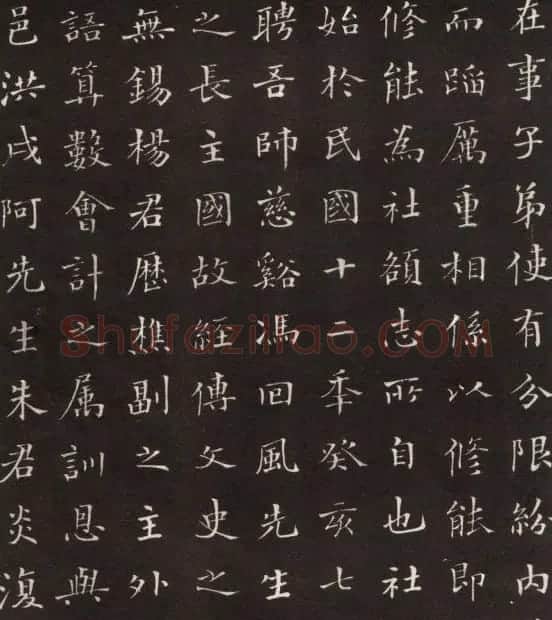 在事子弟使有分限紛内
而蹈厲重相係以修能即
修能為社額志所自也社
始於民國十二季癸亥七
聘吾師慈谿馮回風先生
之長主國故經傳文史之
無錫楊君歷樵副之主外
語算數會計之属訓恩與
邑洪戌阿先生朱君炎復
Shufaziliao.COM